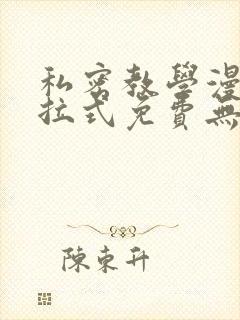 私密教學漫
拉式免費無
陳東升